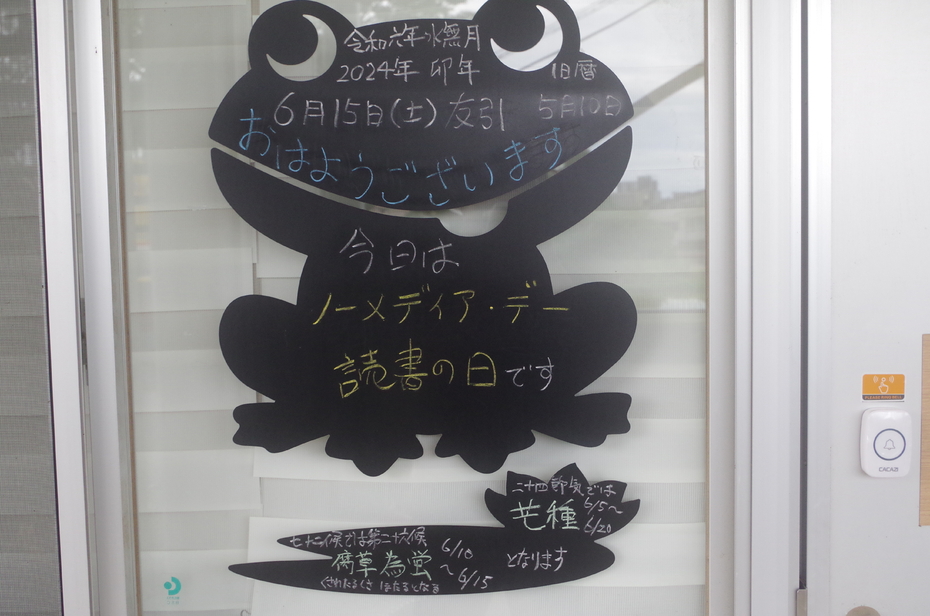 令和六年水無月
2024年 卯年 旧暦
6月15日(土) 友引 5月10日
おはようございます
今日は
ノーメディア・デー
読書の日です
二十四節気では
芒種 6/5〜6/20
七十二候では第二十六候
腐草為螢 6/10〜6/15
くされたるくさ ほたるとなる
となります
CACAZI